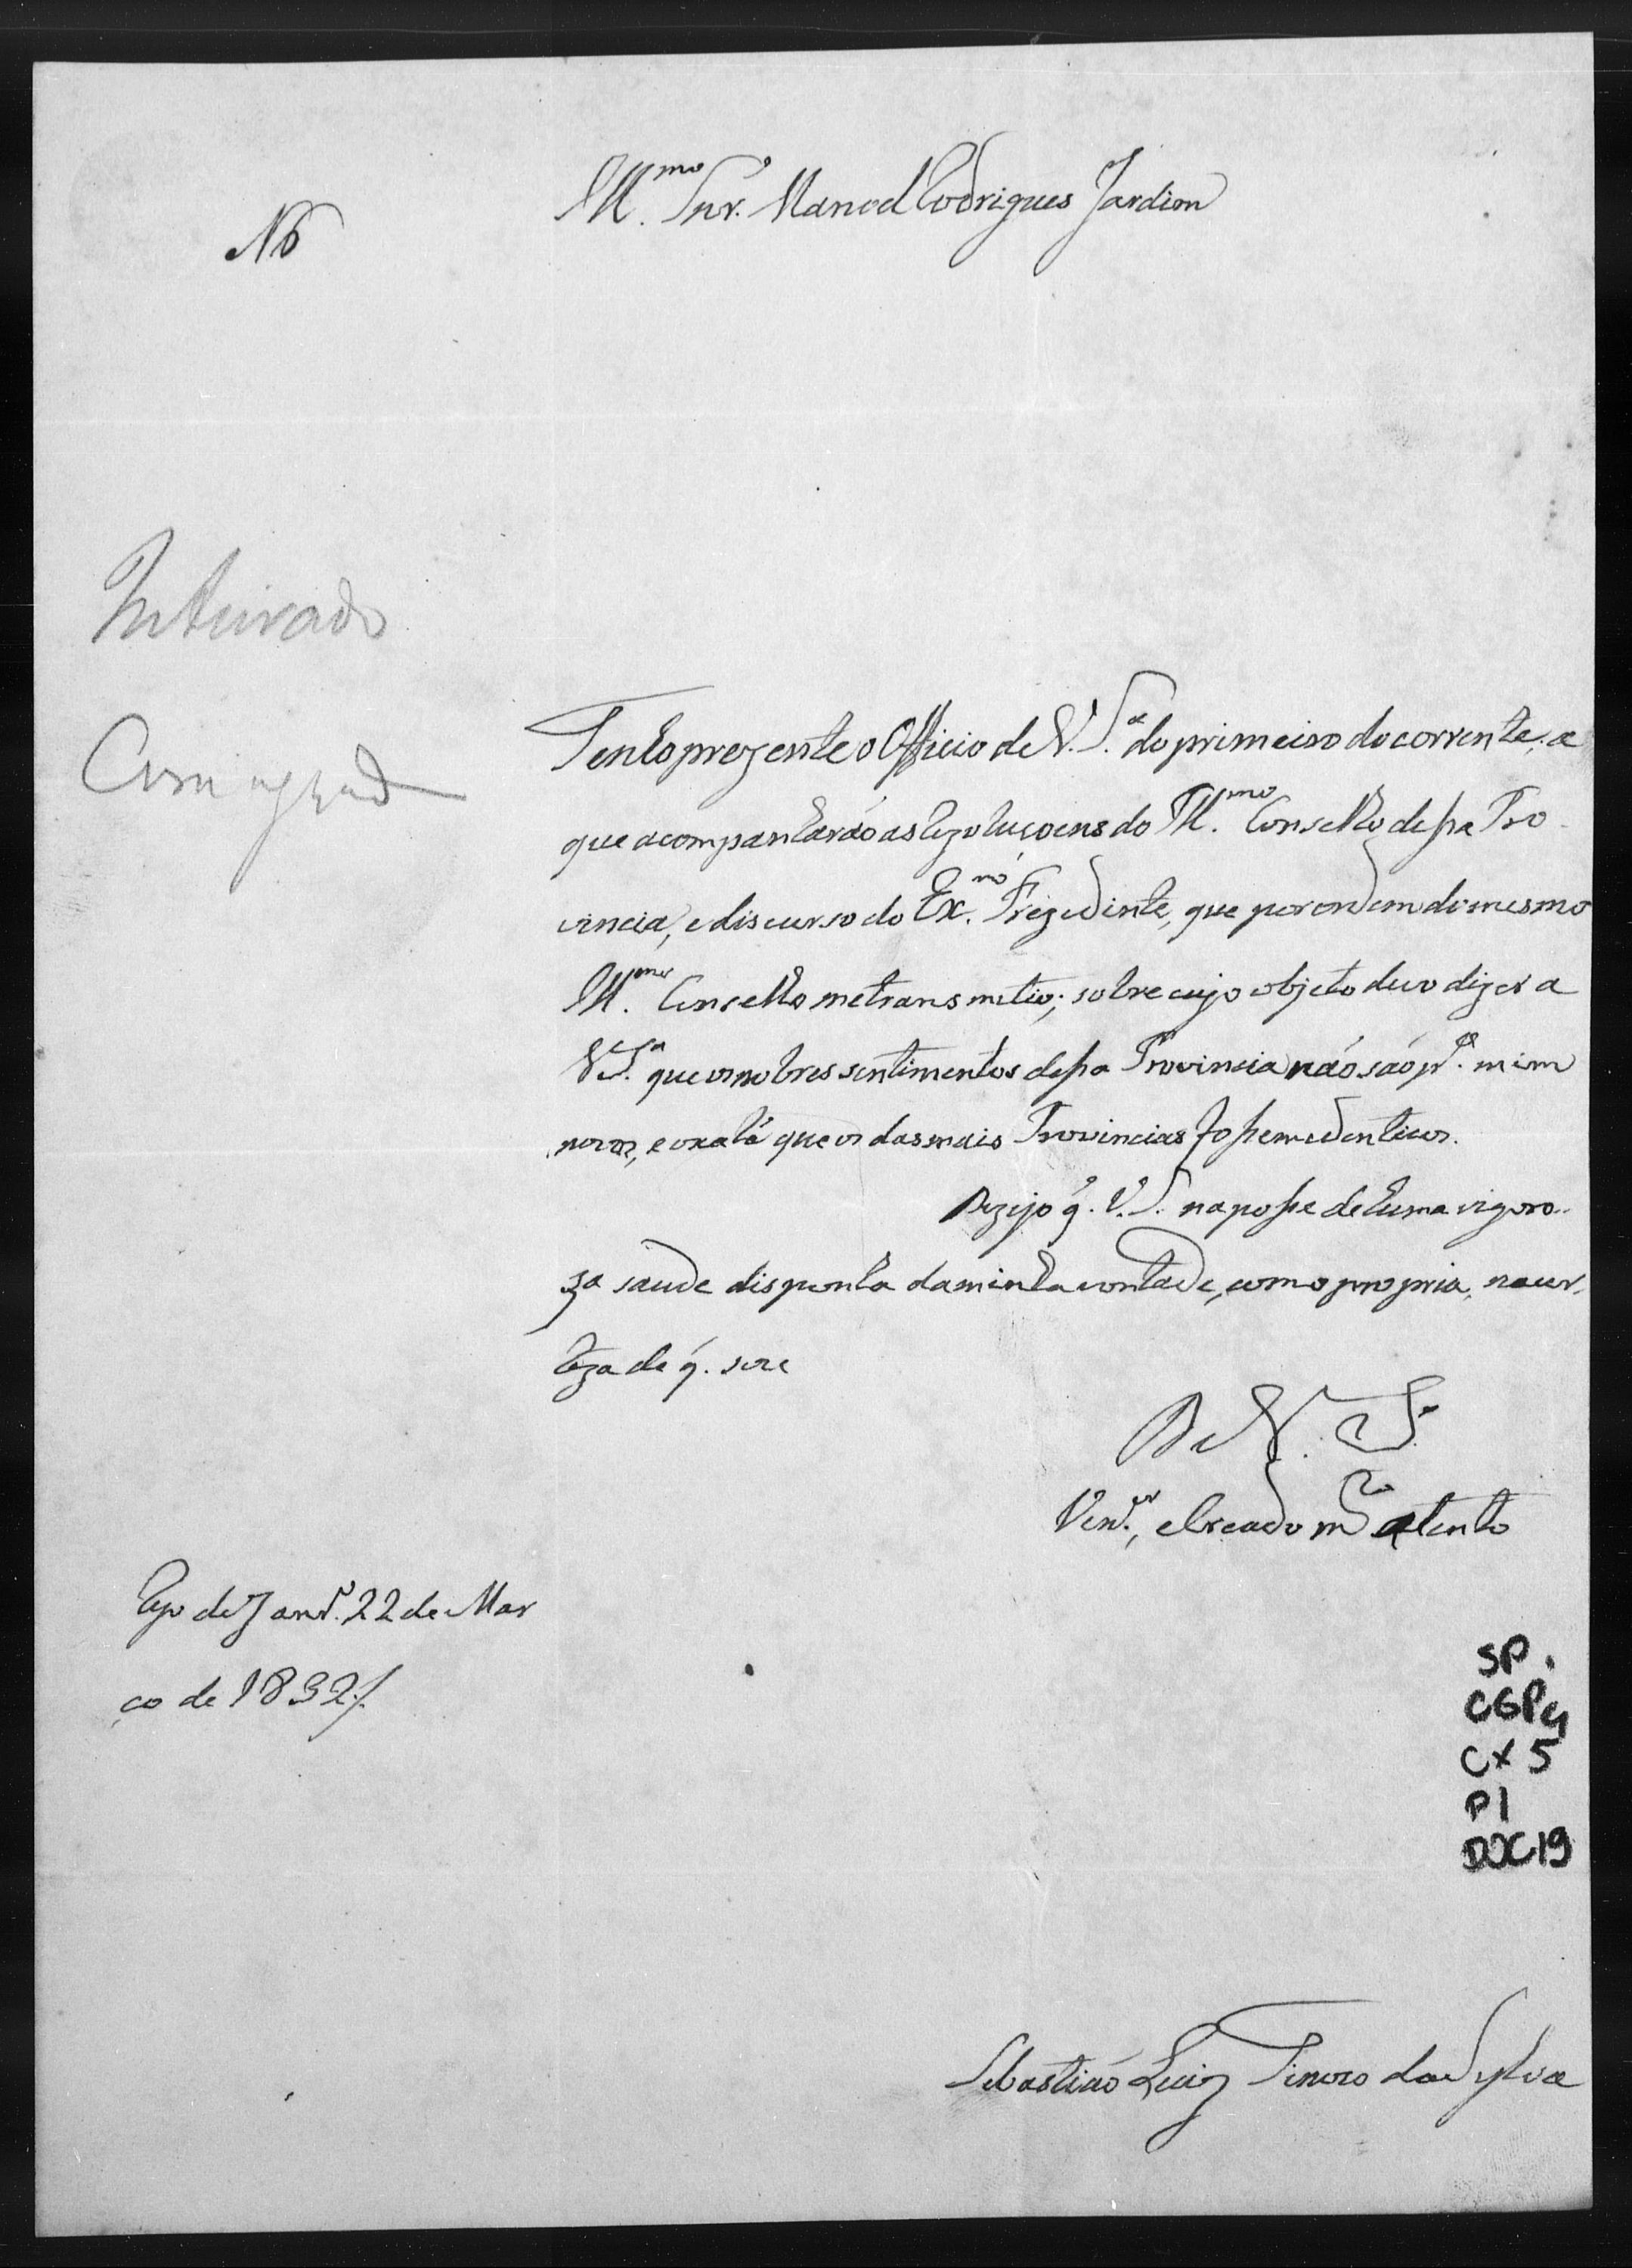 Nº 6
Ill.mo Snr. Manoel Rodrigues Jardim
Inteirado
Com agrado
Tenho prezente o Officio de V. S.ª do primeiro do corrente, a
que acompanharaó as Rezoluçoens do Ill.mo Conselho dessa Pro
vincia, e discurso do Ex.mo Prezidente, que por ordem do mesmo
Ill.mo Conselho me transmetio; sobre cujo objeto devo dizer a
V. S.ª que os nobres sentimentos dessa Provincia naó saó p.ª mim
novos, e oxalá que os das mais Provincias fossem identicos.
Dezejo q. V. S. na posse de huma vigoro
za saude disponha da minha vontade, como propria, na cer
teza de q. sou
De V. S.
Ven.or, e Creado m.to atento
Rio de Janr.º 22 de Mar
ço de 1832
Sebastiaó Luiz Tinoco da Sylva
SP.
CGPG
CX 5
P1
DOC 19